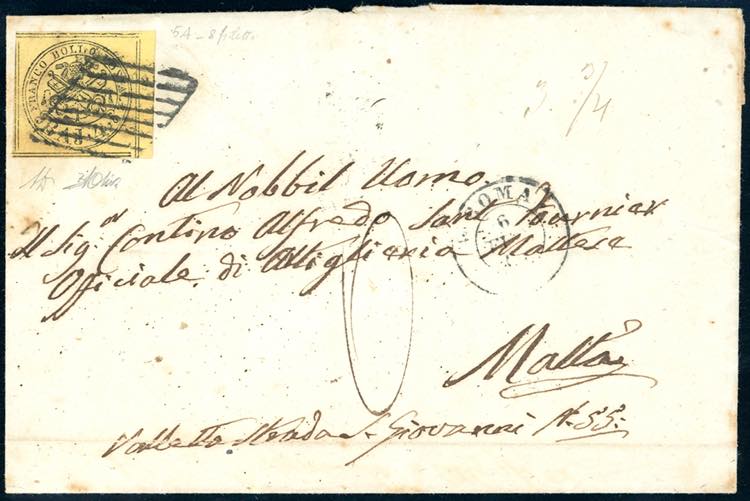 FRANCO BOLLO POSTALE
BAJ.
5A
3 3/4
ROMA
6
Al Nobbil Uomo
Il Sig.r Contino Alfredo Sant Fournier
Officiale di Altiglieria Maltesa
Malta
Valletta Strada S. Giovanni N. 55.